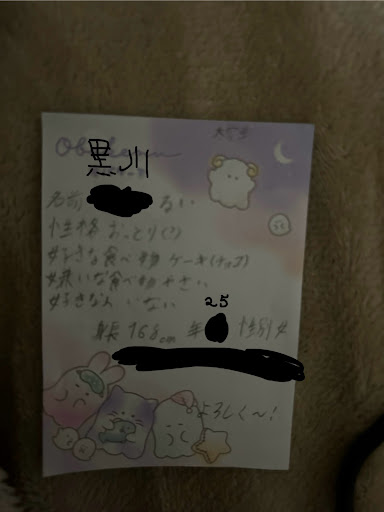 大学生
黒川
名前 るい
性格 おっとり(?)
好きな食べ物 ケーキ(チョコ)
嫌いな食べ物 やさい
好きな人 いない
身長 168cm 年 25 性別 女
よろしく〜!